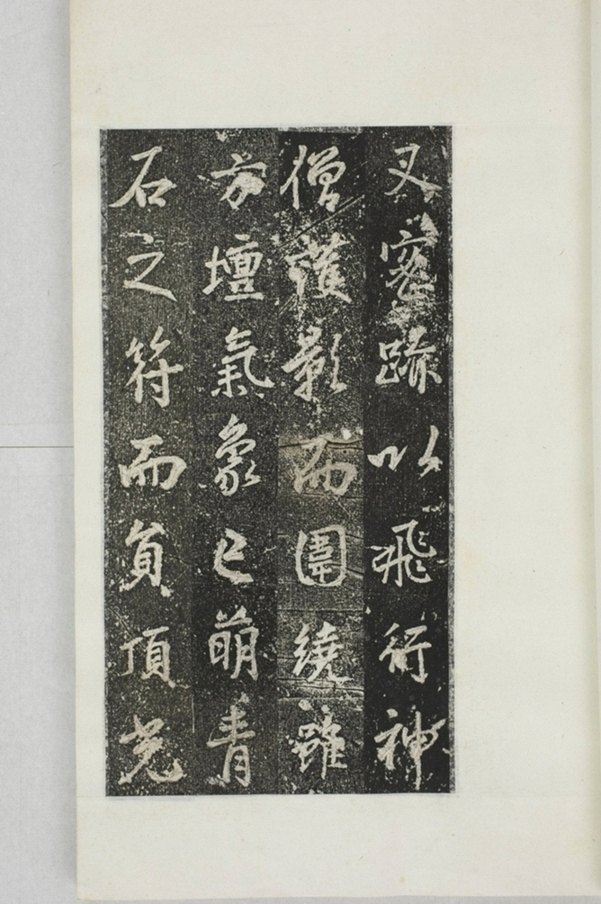 叉密跡以飛行神
僧護影而圍繞雖
方壇氣象已萌青
石之符而員頂光